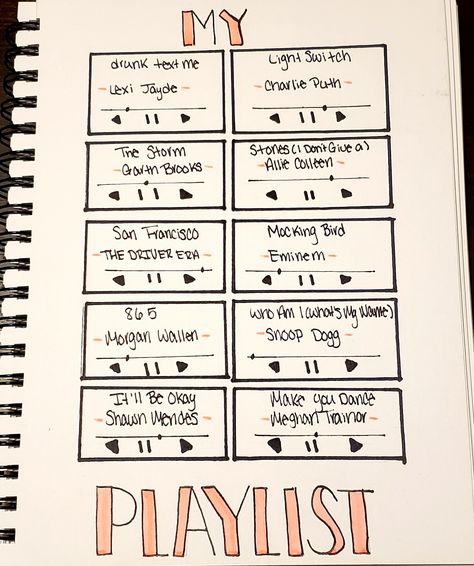 MY
drunk text me
Lexi Jayde
Light Switch
Charlie Puth
The Storm
Garth Brooks
Stones (I Don't Give a)
Allie Colleen
San Francisco
THE DRIVER ERA
Mocking Bird
Eminem
865
Morgan Wallen
Who Am I (What's My Name)
Snoop Dogg
It'll Be Okay
Shawn Mendes
Make You Dance
Meghan Trainor
PLAYLIST